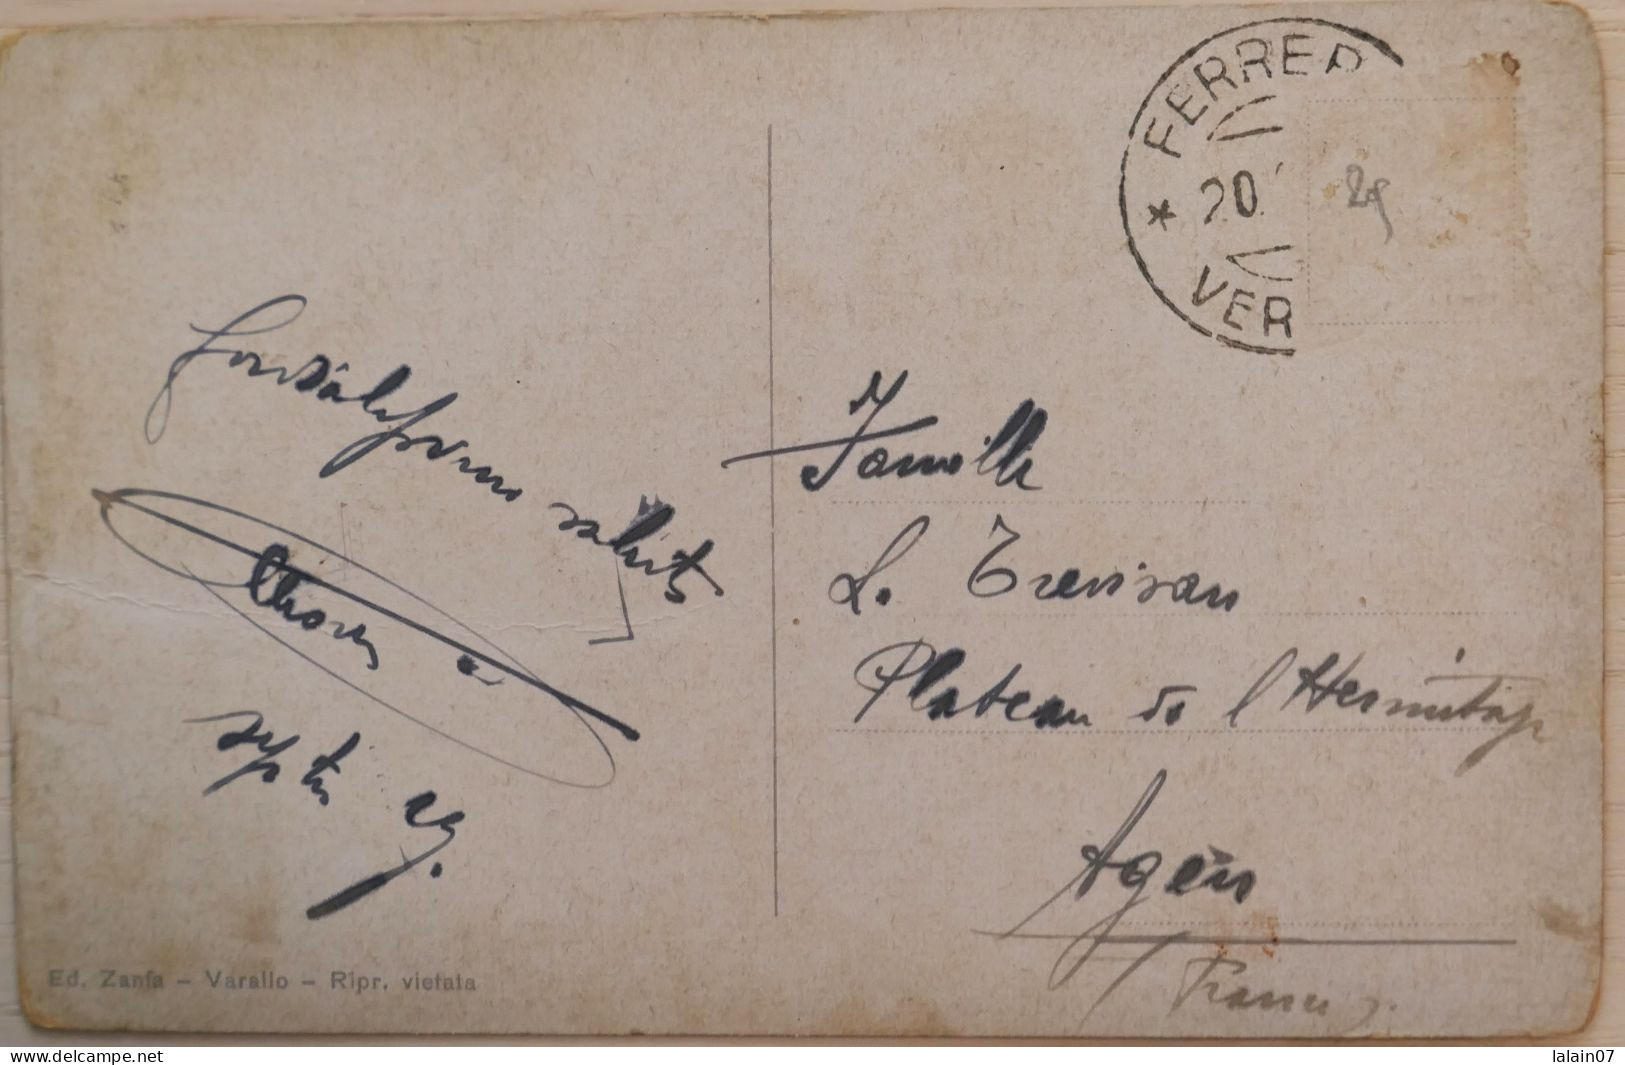 FERRER
20
VER
29
saluti
29.
Famille
L. Trevisan
Plateau de l'Hermitage
Agen
France
Ed. Zanfa – Varallo – Ripr. vietata
www.delcampe.net
lalain07